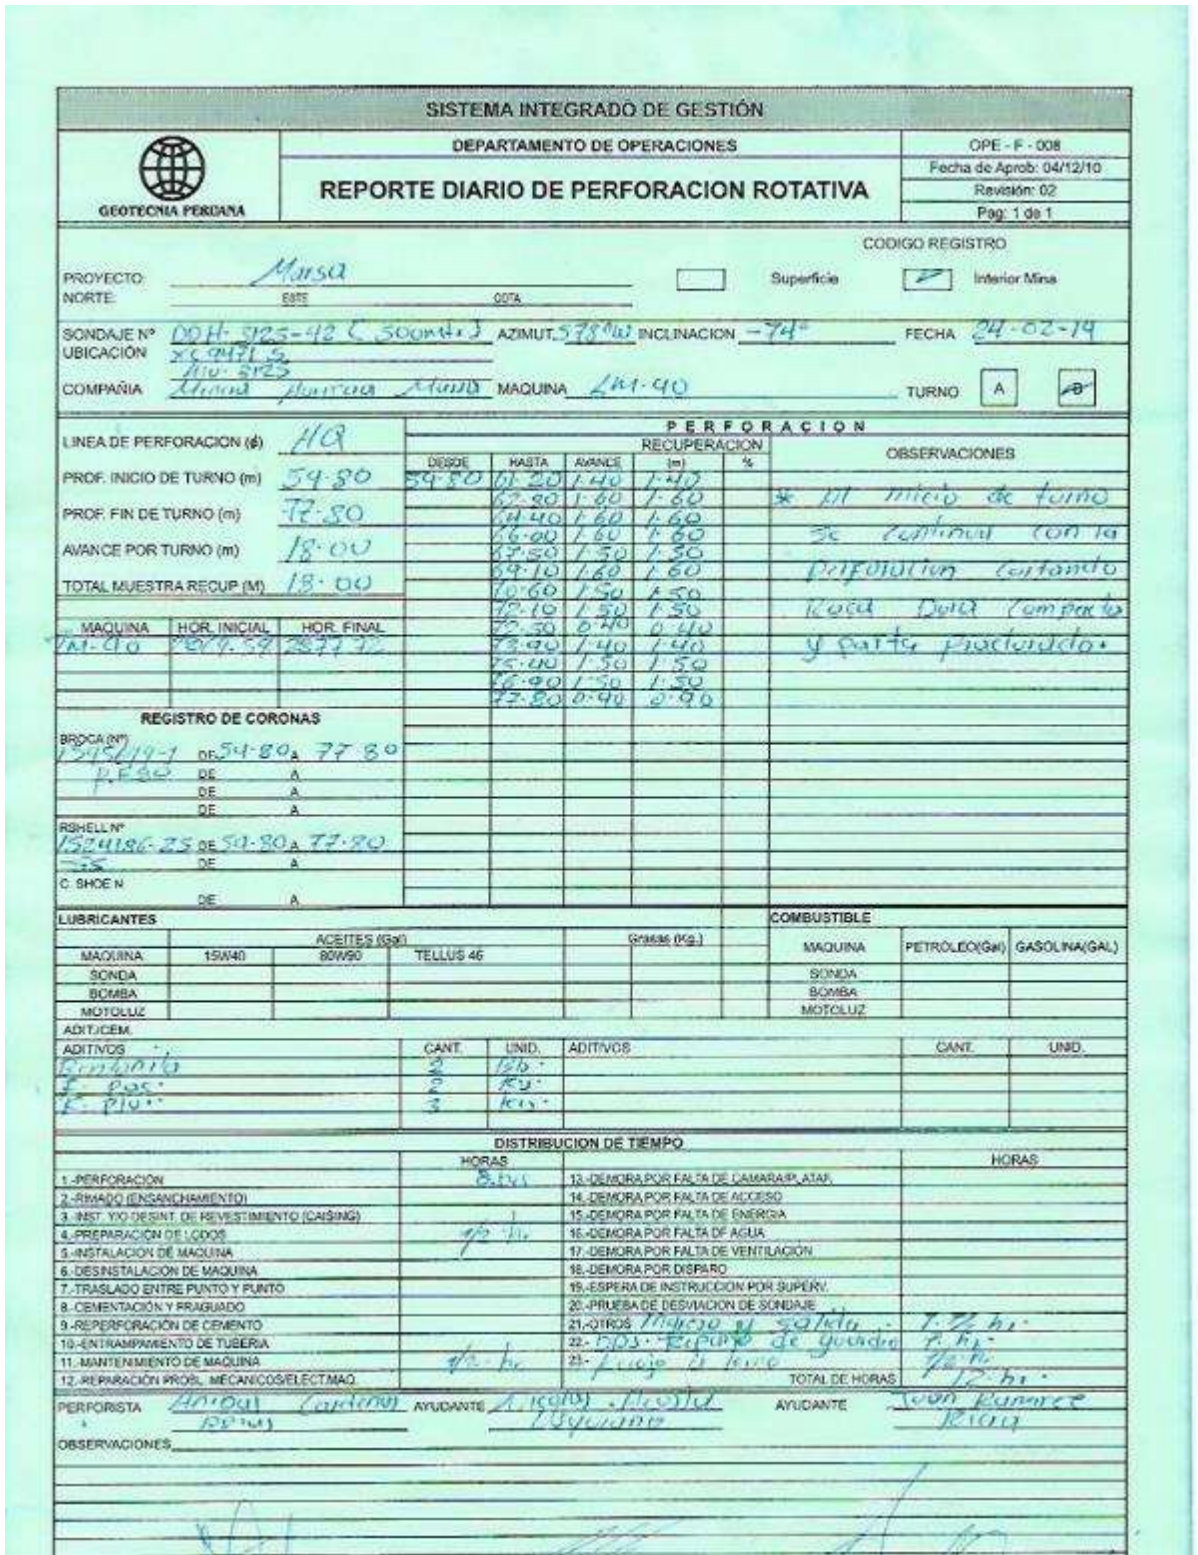 SISTEMA INTEGRADO DE GESTIÓN
GEOTECNIA PERUANA
DEPARTAMENTO DE OPERACIONES
REPORTE DIARIO DE PERFORACION ROTATIVA
OPE - F - 008
Fecha de Aprob: 04/12/10
Revisión: 02
Pag: 1 de 1
CODIGO REGISTRO
PROYECTO: Marsa Superficie Interior Mina
NORTE: ESTE COTA
SONDAJE Nº DDH-3125-42 AZIMUT S78°W INCLINACION -74° FECHA 24-02-19
UBICACIÓN
COMPAÑIA MAQUINA LM-90 TURNO A B
LINEA DE PERFORACION (ϕ) HQ
PROF. INICIO DE TURNO (m) 59.80
PROF. FIN DE TURNO (m) 77.80
AVANCE POR TURNO (m) 18.00
TOTAL MUESTRA RECUP (M) 18.00
MAQUINA HOR. INICIAL HOR. FINAL
LM-90
REGISTRO DE CORONAS
BROCA (Nº)
DE 59.80 A 77.80
DE A
DE A
DE A
RSHELL Nº
DE 59.80 A 77.80
DE A
C. SHOE N
DE A
PERFORACION
RECUPERACION
DESDE HASTA AVANCE (m) %
59.80 61.20 1.40 1.40
62.80 1.60 1.60
64.40 1.60 1.60
66.00 1.60 1.60
67.50 1.50 1.50
69.10 1.60 1.60
70.60 1.50 1.50
72.10 1.50 1.50
72.50 0.40 0.40
73.90 1.40 1.40
75.40 1.50 1.50
76.90 1.50 1.50
77.80 0.90 0.90
OBSERVACIONES
* Al inicio de turno
se continua con la
perforacion cortando
Roca Dura Compacta
y parte fracturado.
LUBRICANTES
ACEITES (Gal) Grasas (Kg.)
MAQUINA 15W40 80W90 TELLUS 46
SONDA
BOMBA
MOTOLUZ
COMBUSTIBLE
MAQUINA PETROLEO(Gal) GASOLINA(GAL)
SONDA
BOMBA
MOTOLUZ
ADIT./CEM.
ADITIVOS CANT. UNID. ADITIVOS CANT. UNID.
Bentonita 2
2
3
DISTRIBUCION DE TIEMPO
HORAS HORAS
1.-PERFORACIÓN 8
2.-RIMADO (ENSANCHAMIENTO)
3. INST. Y/O DESINT. DE REVESTIMIENTO (CAISING)
4.-PREPARACIÓN DE LODOS 1/2 h.
5.-INSTALACION DE MAQUINA
6.-DESINSTALACIÓN DE MAQUINA
7.-TRASLADO ENTRE PUNTO Y PUNTO
8.-CEMENTACIÓN Y FRAGUADO
9.-REPERFORACIÓN DE CEMENTO
10.-ENTRAMPAMIENTO DE TUBERIA
11.-MANTENIMIENTO DE MAQUINA 1/2 h.
12.-REPARACIÓN PROBL. MECANICOS/ELECT.MAQ.
13.-DEMORA POR FALTA DE CAMARA/PLATAF.
14.-DEMORA POR FALTA DE ACCESO
15.-DEMORA POR FALTA DE ENERGIA
16.-DEMORA POR FALTA DE AGUA
17.-DEMORA POR FALTA DE VENTILACIÓN
18.-DEMORA POR DISPARO
19.-ESPERA DE INSTRUCCION POR SUPERV.
20.-PRUEBA DE DESVIACION DE SONDAJE
21.-OTROS Ingreso y salida
22.- Reparto de guardia
23.-
TOTAL DE HORAS 12 h.
PERFORISTA Anibal Cardenas AYUDANTE AYUDANTE Juan Ramirez
OBSERVACIONES